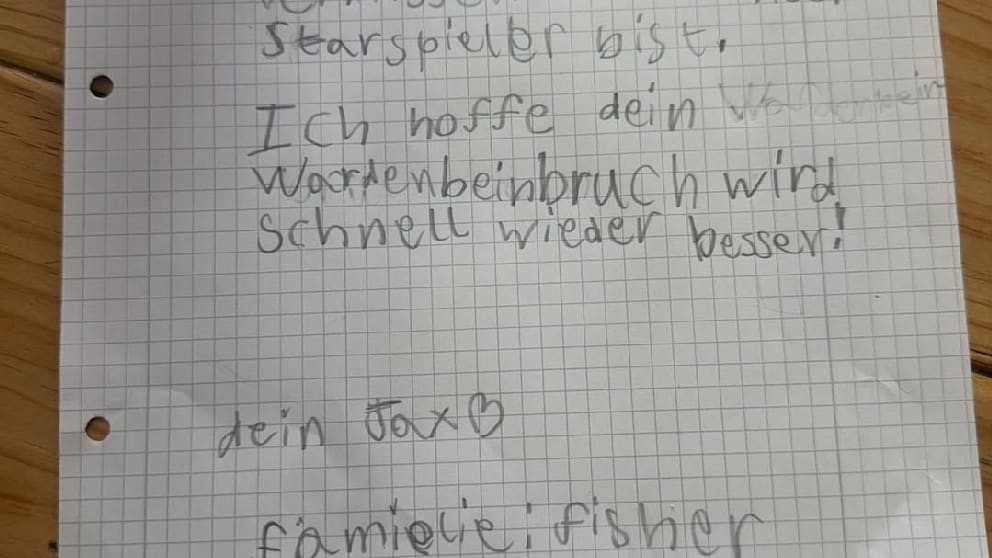 Starspieler bist.
Ich hoffe dein
Wardenbeinbruch wird
schnell wieder besser!
dein Jax♡
famielie: fisher